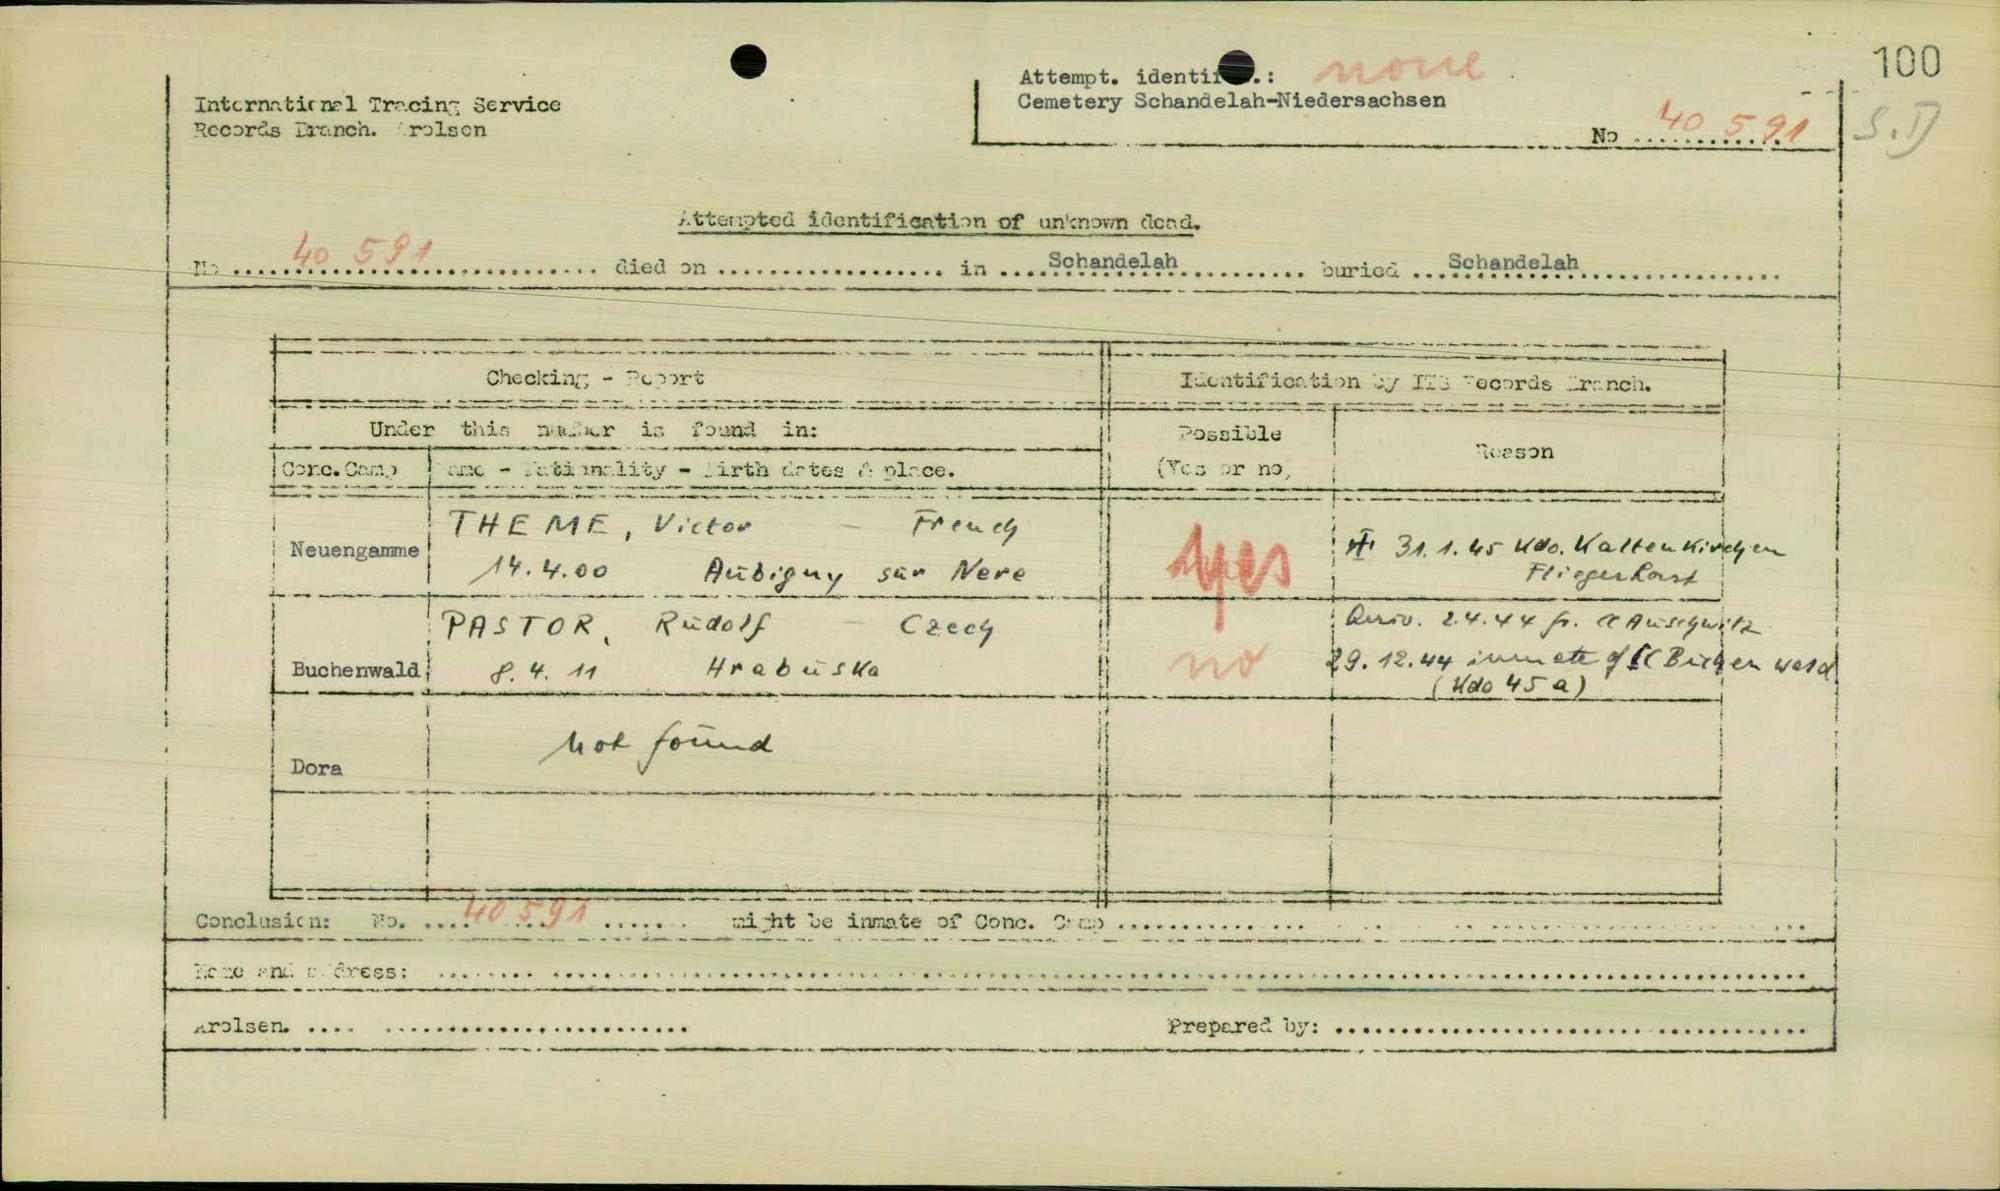 100
Attempt. identif.: none
International Tracing Service
Records Branch. Arolsen
Cemetery Schandelah-Niedersachsen
No 40 591
S.D
Attempted identification of unknown dead.
No 40 591 died on in Schandelah buried Schandelah
Checking - Report
Identification by ITS Records Branch.
Under this number is found in:
Possible
(Yes or no)
Reason
Conc. Camp
Name - Nationality - Birth dates & place.
Neuengamme
THEME, Victor – French
14.4.00 Aubigny sur Nere
yes
31.1.45 Kdo. Kaltenkirchen
Fliegerhorst
Buchenwald
PASTOR, Rudolf – Czech
8.4.11 Hrabuska
no
Arriv. 2.4.44 fr. CC Auschwitz
29.12.44 inmate of CC Buchenwald
(Kdo 45 a)
Dora
not found
Conclusion: No. 40 591 might be inmate of Conc. Camp
Name and address:
Arolsen.
Prepared by: